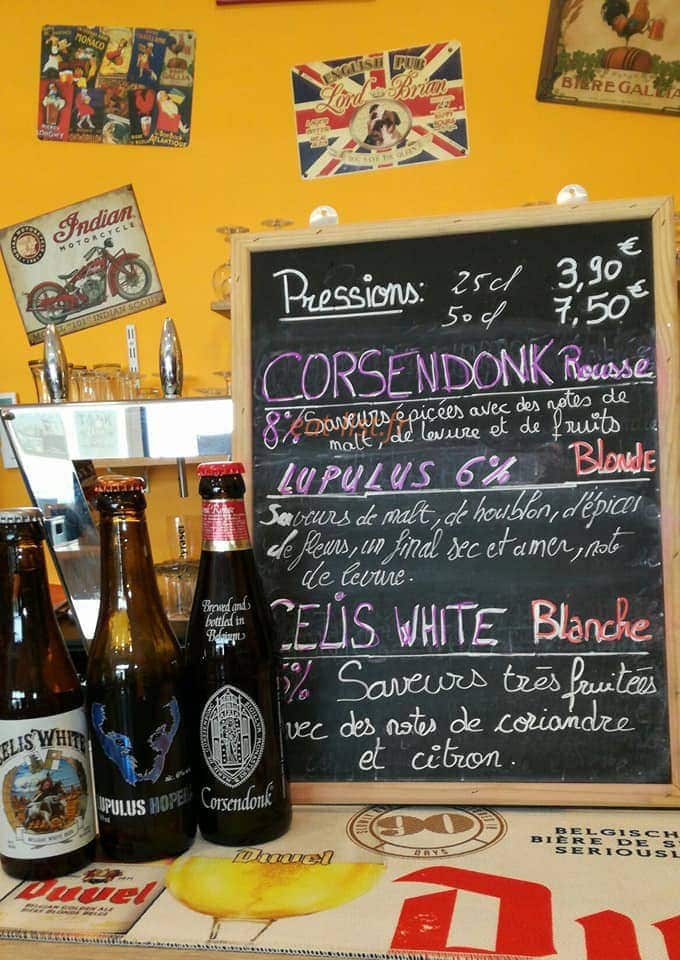 MONACO
GALLIA
LONGWY
ATLANTIQUE
ENGLISH PUB
Lord Brian
BIÈRE GALLIA
Indian
MOTORCYCLE
MODEL "101" INDIAN SCOUT
Pressions: 25cl 3,90€
50cl 7,50€
CORSENDONK Rousse
8% Saveurs épicées avec des notes de
malt, de levure et de fruits
LUPULUS 6% BLONDE
Saveurs de malt, de houblon, d'épices
de fleurs, un final sec et amer, note
de levure.
CELIS WHITE Blanche
5% Saveurs très fruitées
avec des notes de coriandre
et citron.
CELIS WHITE
LUPULUS HOPERA
Brewed and
bottled in
Belgium
Corsendonk
90
DAYS
BELGISCH
BIÈRE DE S
SERIOUSL
Duvel
BELGIAN GOLDEN ALE
BIÈRE BLONDE BELGE
Duvel
Duv